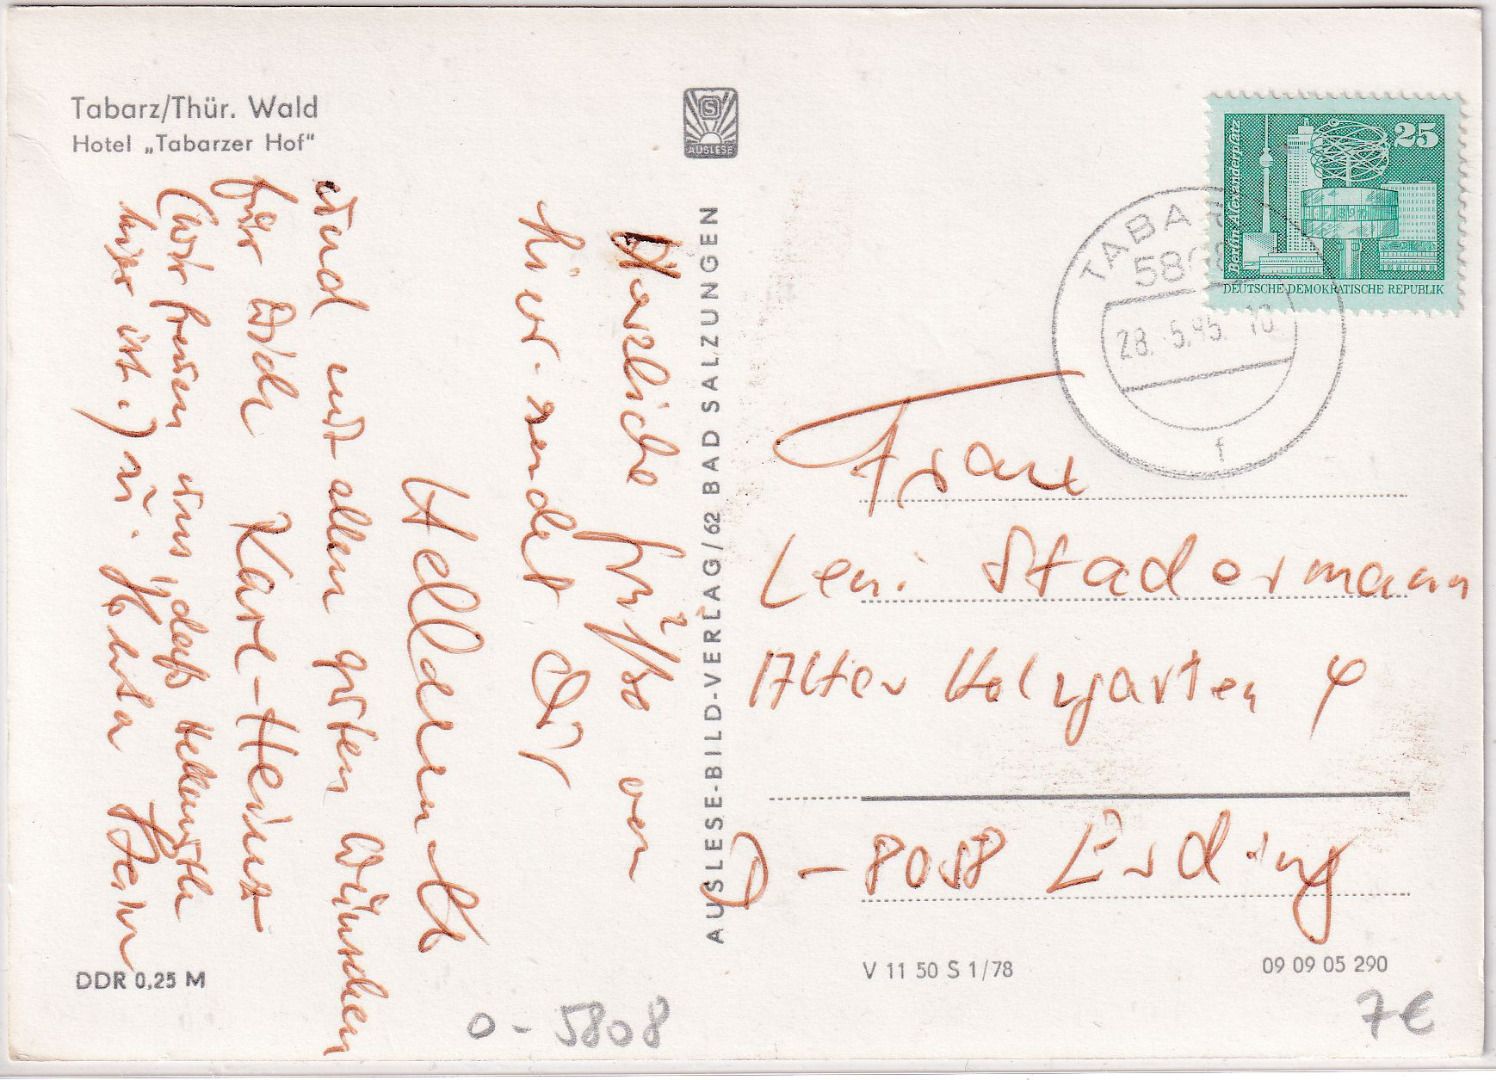 Tabarz/Thür. Wald
Hotel „Tabarzer Hof"
Herzliche Grüße von
hier sendet Dir
Helldemuth
und mit allen guten Wünschen
für Dich Karl-Heinz
(wir freuen uns, daß Hellemuth
hier ist.) u.
DDR 0,25 M
o - 5808
AUSLESE-BILD-VERLAG/62 BAD SALZUNGEN
S
AUSLESE
Berlin, Alexanderplatz
25
DEUTSCHE DEMOKRATISCHE REPUBLIK
TABA
580
28. 5. 10
f
Frau
Leni Stadermann
Alter Holzgarten 4
D - 8058 Erding
V 11 50 S 1/78
09 09 05 290
7€